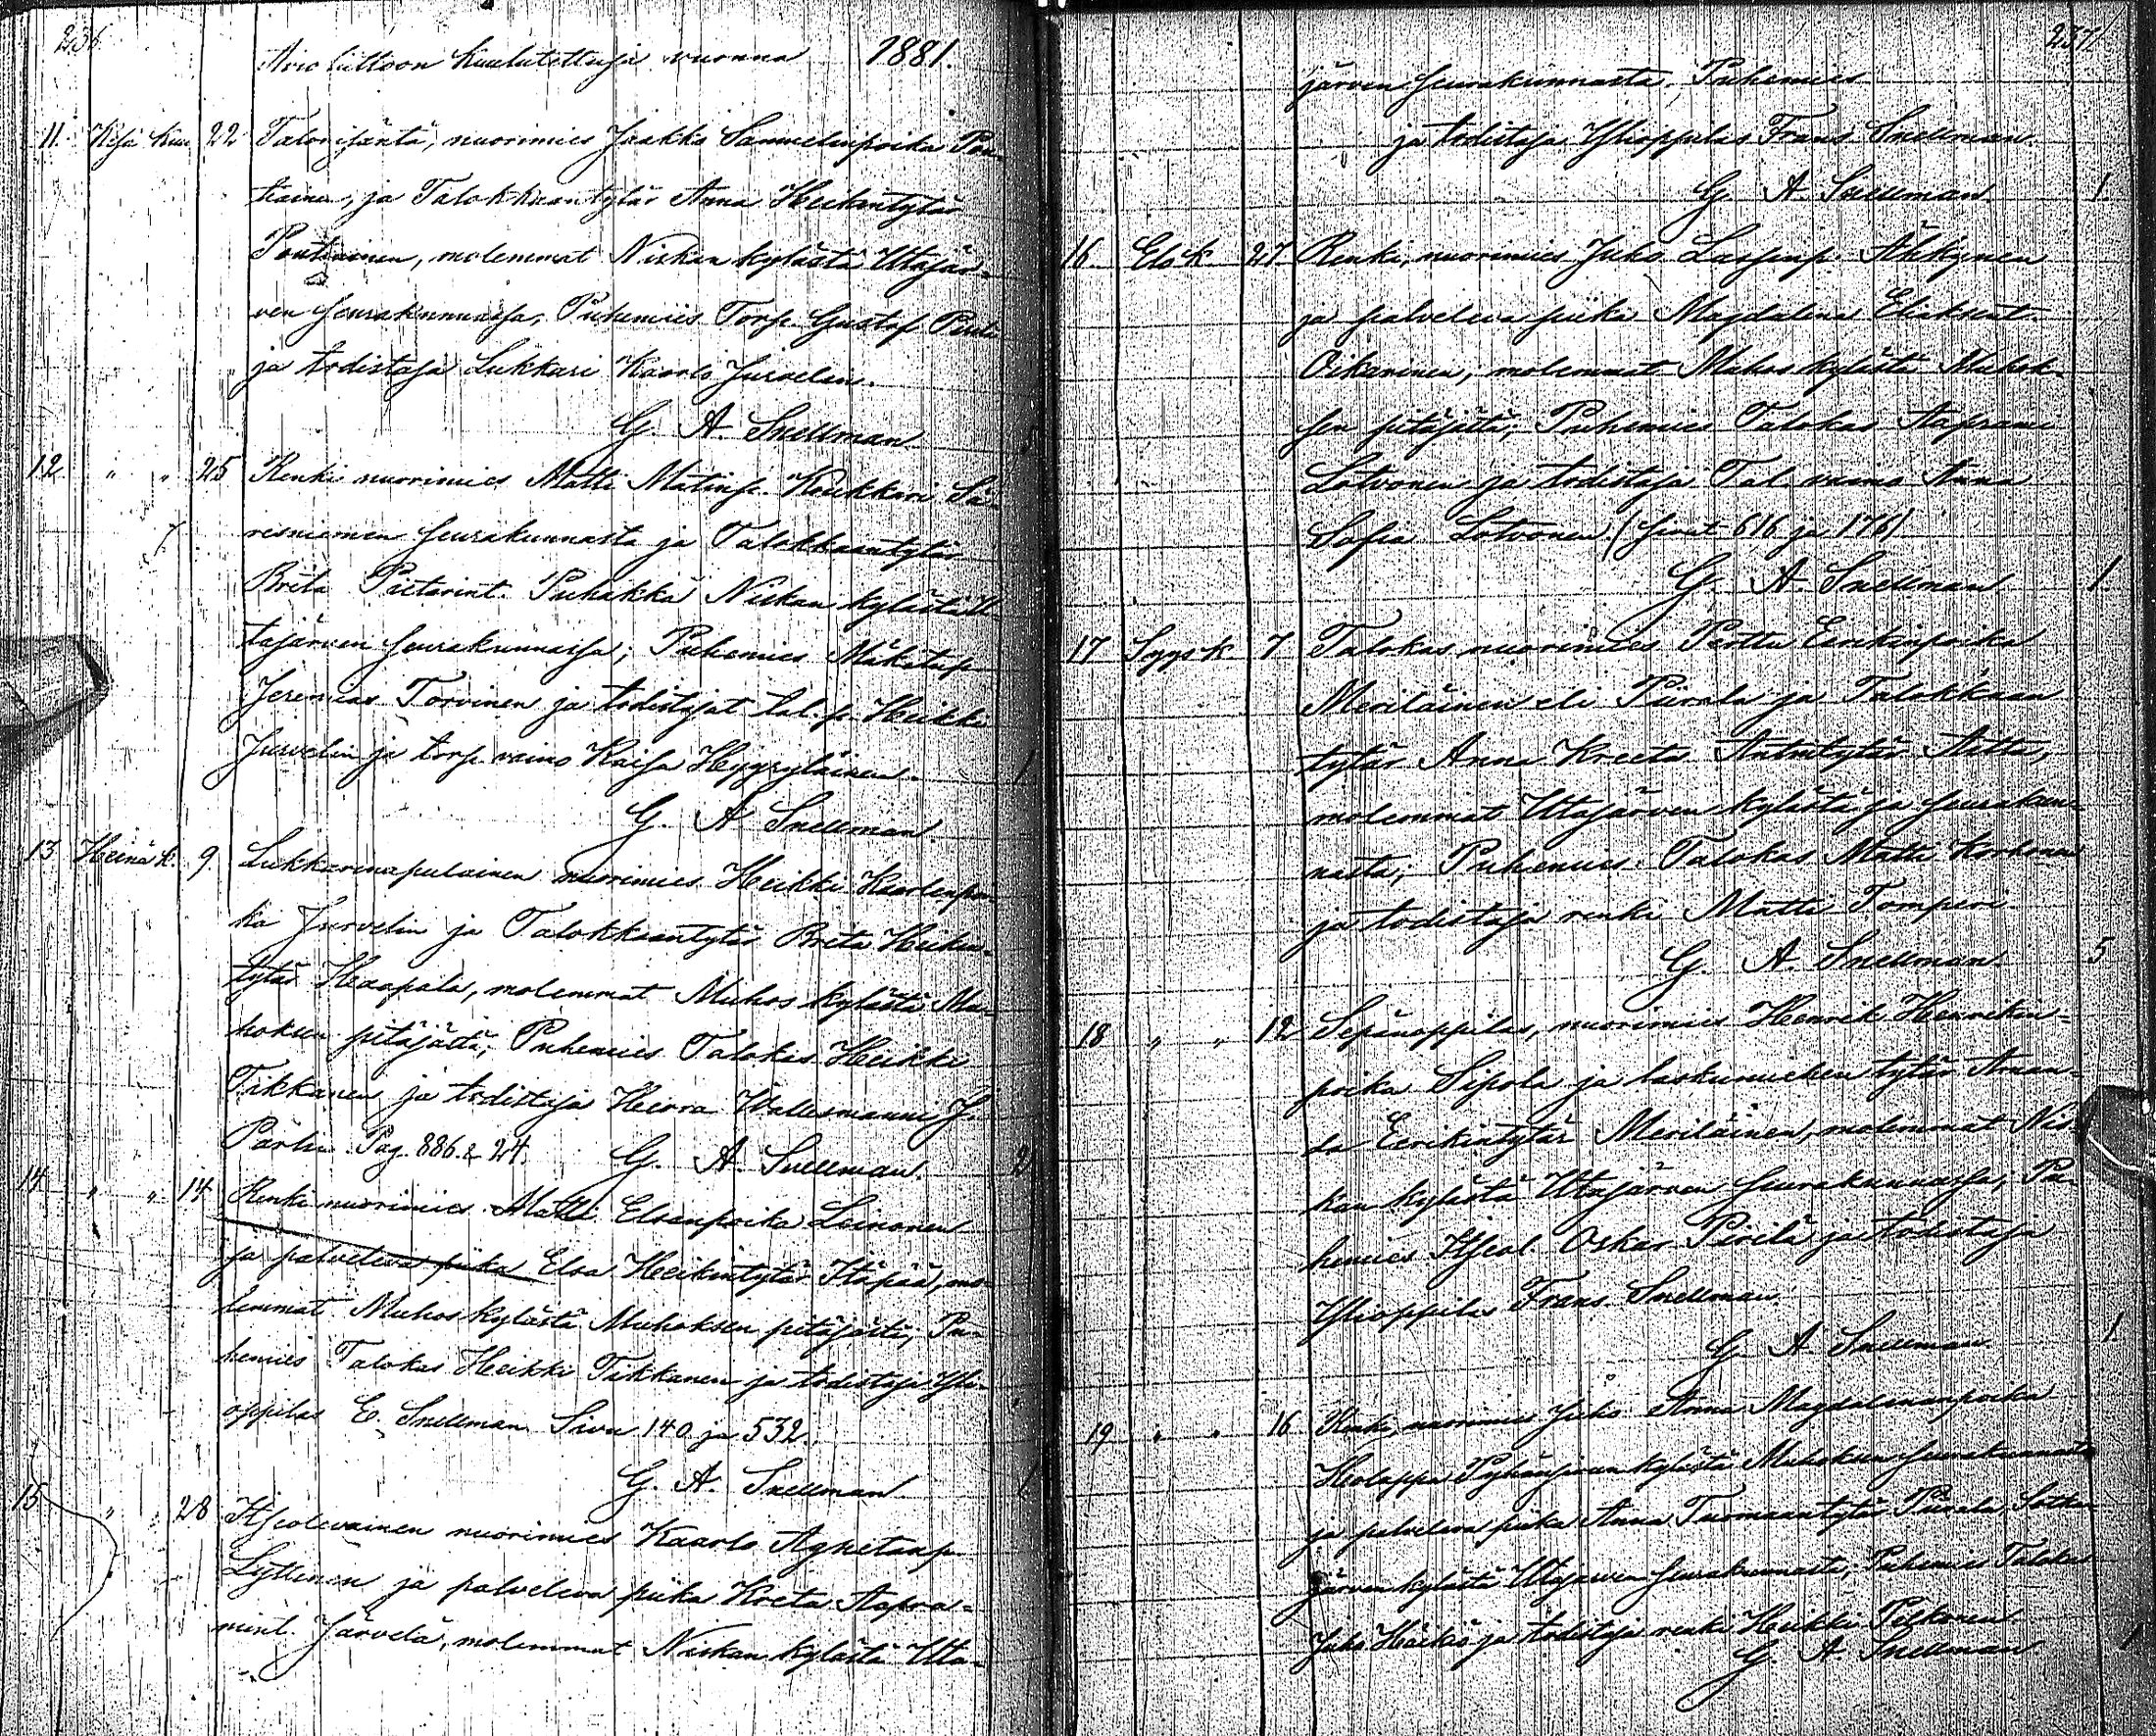 236.
Avioliittoon Kuulutettuja vuonna 1881.
11. Kesä Kuu 22 Talonisäntä, nuorimies Jaakko Samuelinpoika Pou-
tiainen, ja Talokkaantytär Anna Heikintytär
Poutiainen, molemmat Niskan kylästä Utajär-
ven seurakunnassa, Puhemies Torp. Gustaf
ja todistaja Lukkari Kaarlo Jurvelin.
G. A. Snellman
12 " " 25 Renki nuorimies Matti Matinp. Keukkari Sä-
resniemen seurakunnasta ja Talokkaantytär
Brita Pietarint. Puhakka Niskan kylästä U-
tajärven seurakunnassa; Puhemies Mäkitup.
Jeremias Torvinen ja todistajat tal.p. Heikki
Jurvelin ja torp. vaimo Kaisa Hyyryläinen.
1
G. A. Snellman
13 Heinä k. 9. Lukkarinapulainen nuorimies Heikki Kaarlenpoi-
ka Jurvelin ja Talokkaantytär Brita Heikin-
tytär Haapala, molemmat Muhos kylästä Mu-
hoksen pitäjästä; Puhemies Talokas Heikki
Tikkanen ja todistaja Herra Wallesmanni J.
Pag. 886. & 24. G. A. Snellman. 2
14 " " 14 Renki nuorimies Matti Elsanpoika Leinonen
ja palveleva piika Elsa Heikintytär Itäpää, mo-
lemmat Muhos kylästä Muhoksen pitäjästä; Pu-
hemies Talokas Heikki Tikkanen ja todistaja Yli-
oppilas E. Snellman Sivu 140 ja 532.
G. A. Snellman 1
15 " " 28 Itseolevainen nuorimies Kaarlo Agnetanp.
Lyttinen ja palveleva piika Kreta Aapra-
mint. Järvelä, molemmat Niskan kylästä Uta-
237
järven seurakunnasta, Puhemies
ja todistaja Ylioppilas Frans Snellman.
G. A. Snellman 1.
16 Elo k. 27 Renki, nuorimies Juho Lassinp. Ähkynen
ja palveleva piika Magdalena Eliaksent.
Oikarinen, molemmat Muhos kylästä Muhok-
sen pitäjätä; Puhemies Talokas Aaprami
Lotvonen ja todistaja Tal. vaimo Anna
Sofia Lotvonen. (sivut 616 ja 176)
G. A. Snellman 1.
17 Syys k. 7 Talokas nuorimies Perttu Eerikinpoika
Meriläinen eli Piirala ja Talokkaan
tytär Anna Kreeta Antintytär Aitta,
molemmat Utajärven kylästä ja seurakun-
nasta; Puhemies Talokas Matti Korhonen
ja todistaja renki Matti Tomperi
G. A. Snellman. 5
18 " " 12 Sepänoppilas, nuorimies Henrik Henrikin-
poika Sipola ja laskumiehen tytär Aman-
da Eerikintytär Meriläinen, molemmat Nis-
kan kylästä Utajärven seurakunnassa; Pu-
hemies Itseol. Oskar Pirilä ja todistaja
Ylioppilas Frans Snellman.
G. A. Snellman 1.
19 " " 16 Renki, nuorimies Juho Anna Magdalenanpoika
Holappa kylästä Muhoksen seurakunnasta
ja palveleva piika Anna Tuomaantytär Piirala, Sotka-
järven kylästä Utajärven seurakunnasta; Puhemies Talokas
Juho Häikiö ja todistaja renki Heikki Pitkänen
G. A. Snellman. 1